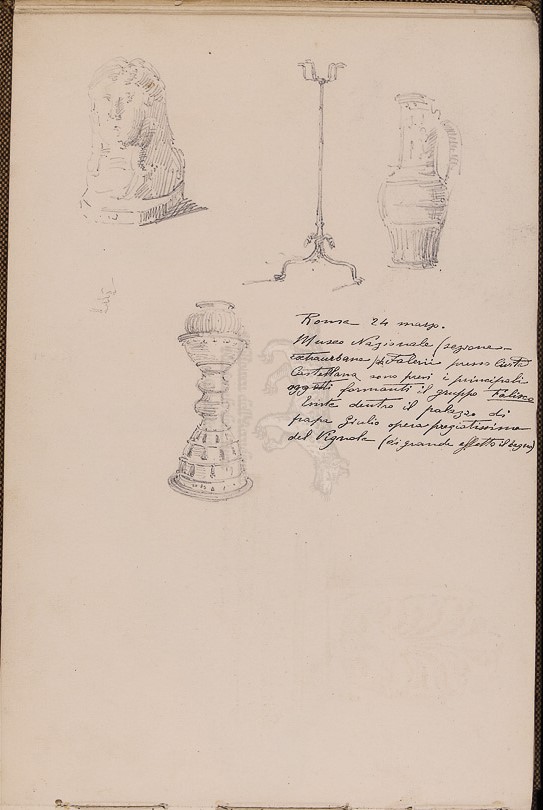 Roma 24 marzo.
Museo Nazionale (sezione
extraurbana) Faleri presso Civita
Castellana sono quivi i principali
oggetti formanti il gruppo Falisco
Esiste dentro il palazzo di
papa Giulio opera pregiatissima
del Vignola (di grande effetto il bagno)